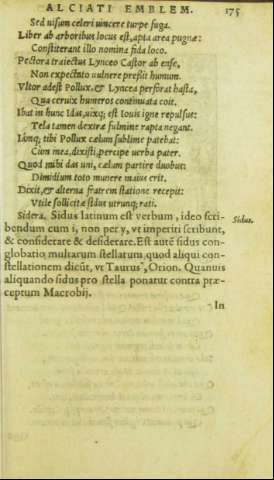 ALCIATI EMBLEM. 175
Sed uisum celeri uincere turpe fuga.
Liber ab arboribus locus est, apta area pugnæ:
Constiterant illo nomina fida loco.
Pectora traiectus Lynceo Castor ab ense,
Non expectato uulnere pressit humum.
Vltor adest Pollux, & Lyncea perforat hasta,
Qua ceruix humeros continuata coit.
Ibat in hunc Idas, uixq; est Iouis igne repulsus:
Tela tamen dextræ fulmine rapta negant.
Iamq; tibi Pollux cælum sublime patebat:
Cum mea, dixisti, percipe uerba pater.
Quod mihi das uni, cælum partire duobus:
Dimidium toto munere maius erit.
Dixit, & alterna fratrem statione recepit:
Vtile sollicitæ sidus utrunq; rati.
Sidera. Sidus latinum est verbum, ideo scri-
Sidus.
bendum cum i, non per y, vt imperiti scribunt,
& considerare & desiderare. Est autē sidus con-
globatio multarum stellarum, quod aliqui con-
stellationem dicūt, vt Taurus, Orion. Quamuis
aliquando sidus pro stella ponatur contra præ-
ceptum Macrobij.
In